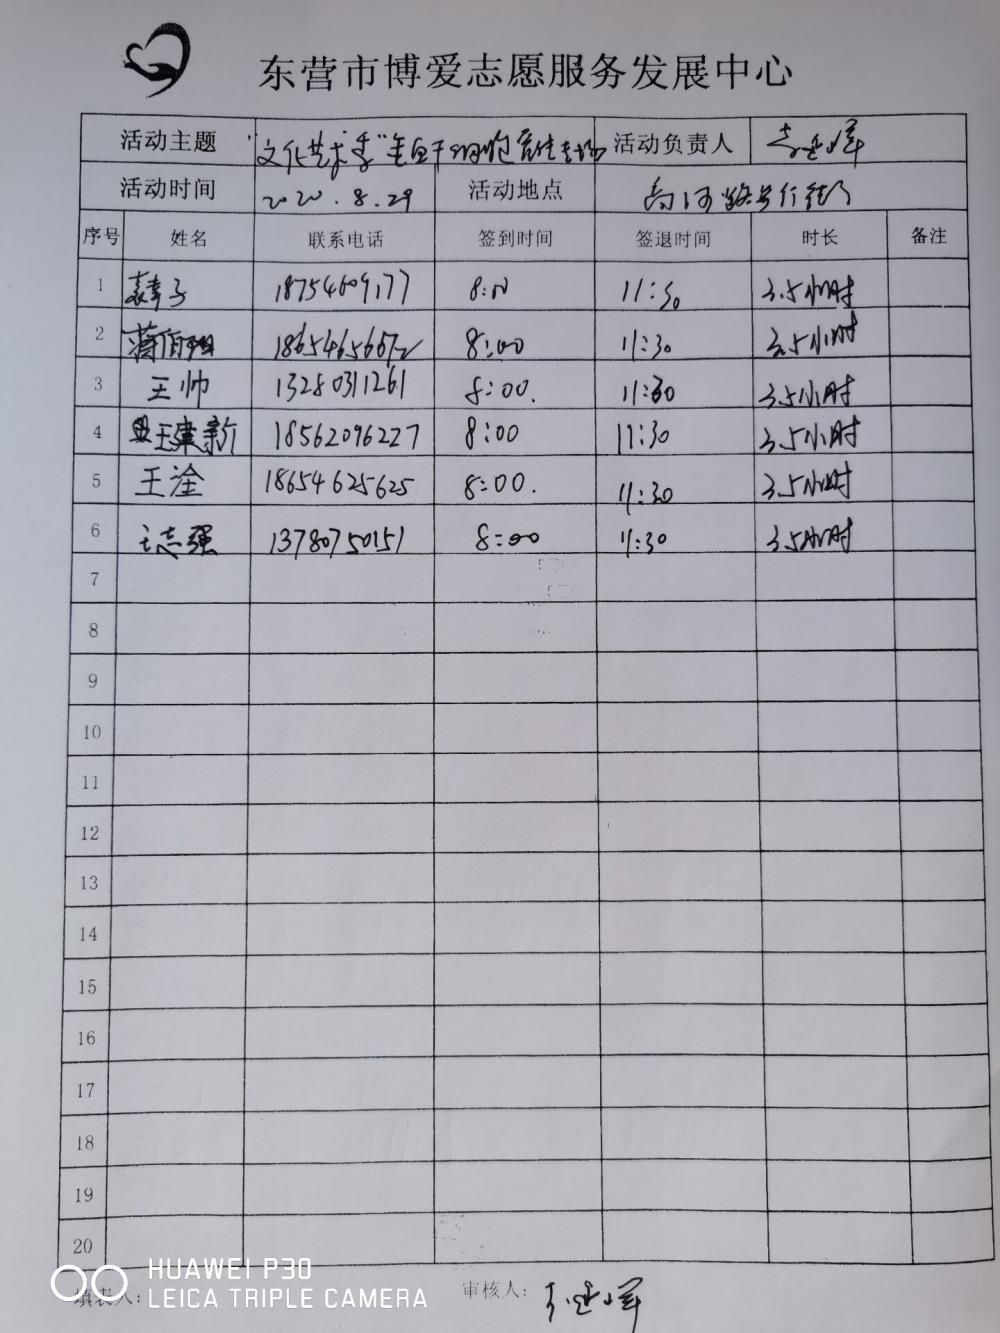 东营市博爱志愿服务发展中心
活动主题 "文化艺术季" 宣传专场 活动负责人
活动时间 2020.8.29 活动地点 步行街
序号 姓名 联系电话 签到时间 签退时间 时长 备注
1 18754609177 8:00 11:30 3.5小时
2 8:00 11:30 3.5小时
3 王帅 13280311261 8:00. 11:30 3.5小时
4 王建新 18562096227 8:00 11:30 3.5小时
5 王淦 18654625625 8:00. 11:30 3.5小时
6 王志强 13780750151 8:00 11:30 3.5小时
7
8
9
10
11
12
13
14
15
16
17
18
19
20
填表人: 审核人:
HUAWEI P30
LEICA TRIPLE CAMERA